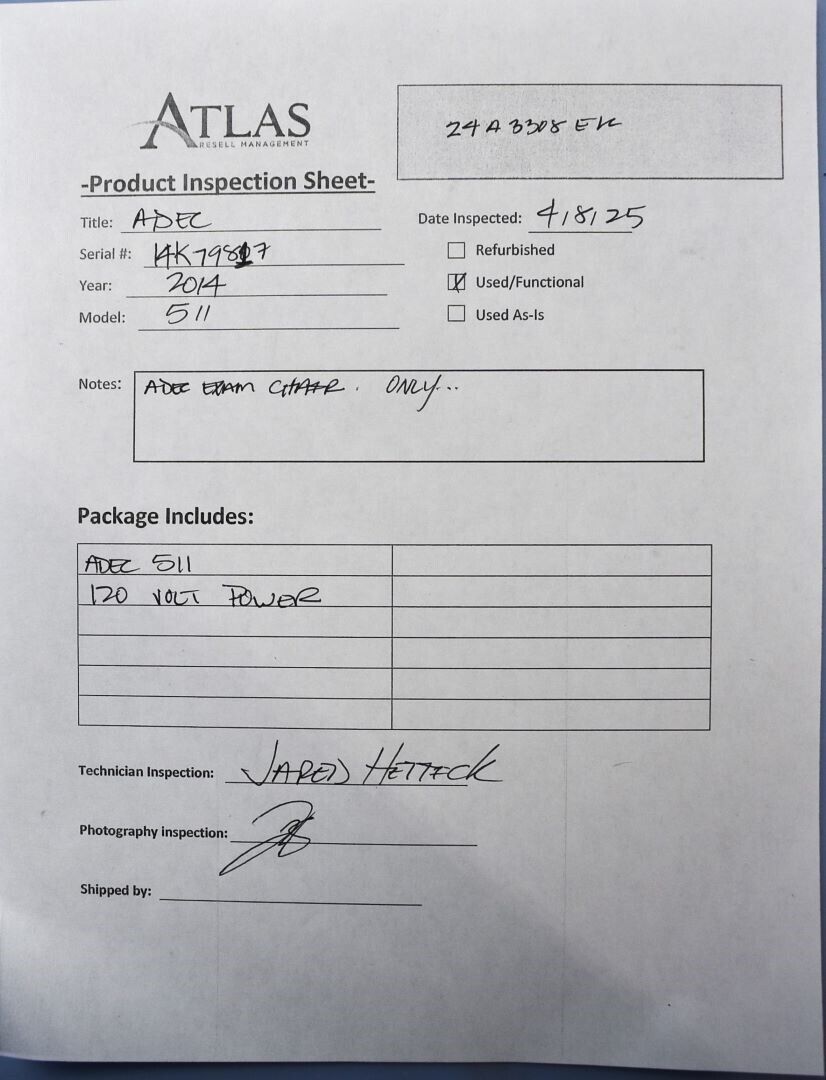 ATLAS
RESELL MANAGEMENT
24A3308EK
-Product Inspection Sheet-
Title: ADEC
Date Inspected: 4/8/25
Serial #: 14K79817
Refurbished
Year: 2014
Used/Functional
Model: 511
Used As-Is
Notes: ADEC EXAM CHAIR. ONLY...
Package Includes:
ADEC 511
120 VOLT POWER
Technician Inspection: JARED
Photography inspection:
Shipped by: